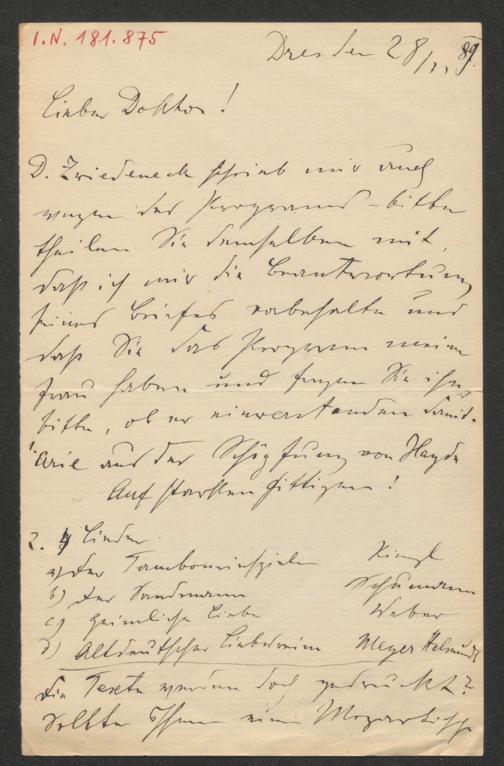 I.N. 181.875
Dresden 28/1. 89.
Lieber Doktor!
D. Zwiedeneck schrieb mir auch
wegen des Programms - bitte
theilen Sie demselben mit,
daß ich mir die Beantwortung
seines Briefes vorbehalte und
daß Sie das Programm meiner
Frau haben und fragen Sie ihn
bitte, ob er einverstanden damit.
1. Arie aus der Schöpfung von Haydn
Auf starken Fittigen!
2. 4 Lieder
a) Der Tambourinspieler Kienzl
b) Der Sandmann Schumann
c) Heimliche Liebe Weber
d) Altdeutscher Liebesreim Meyer Helmund
Die Texte werden doch gedruckt?
Sollte Ihnen eine Mozartische